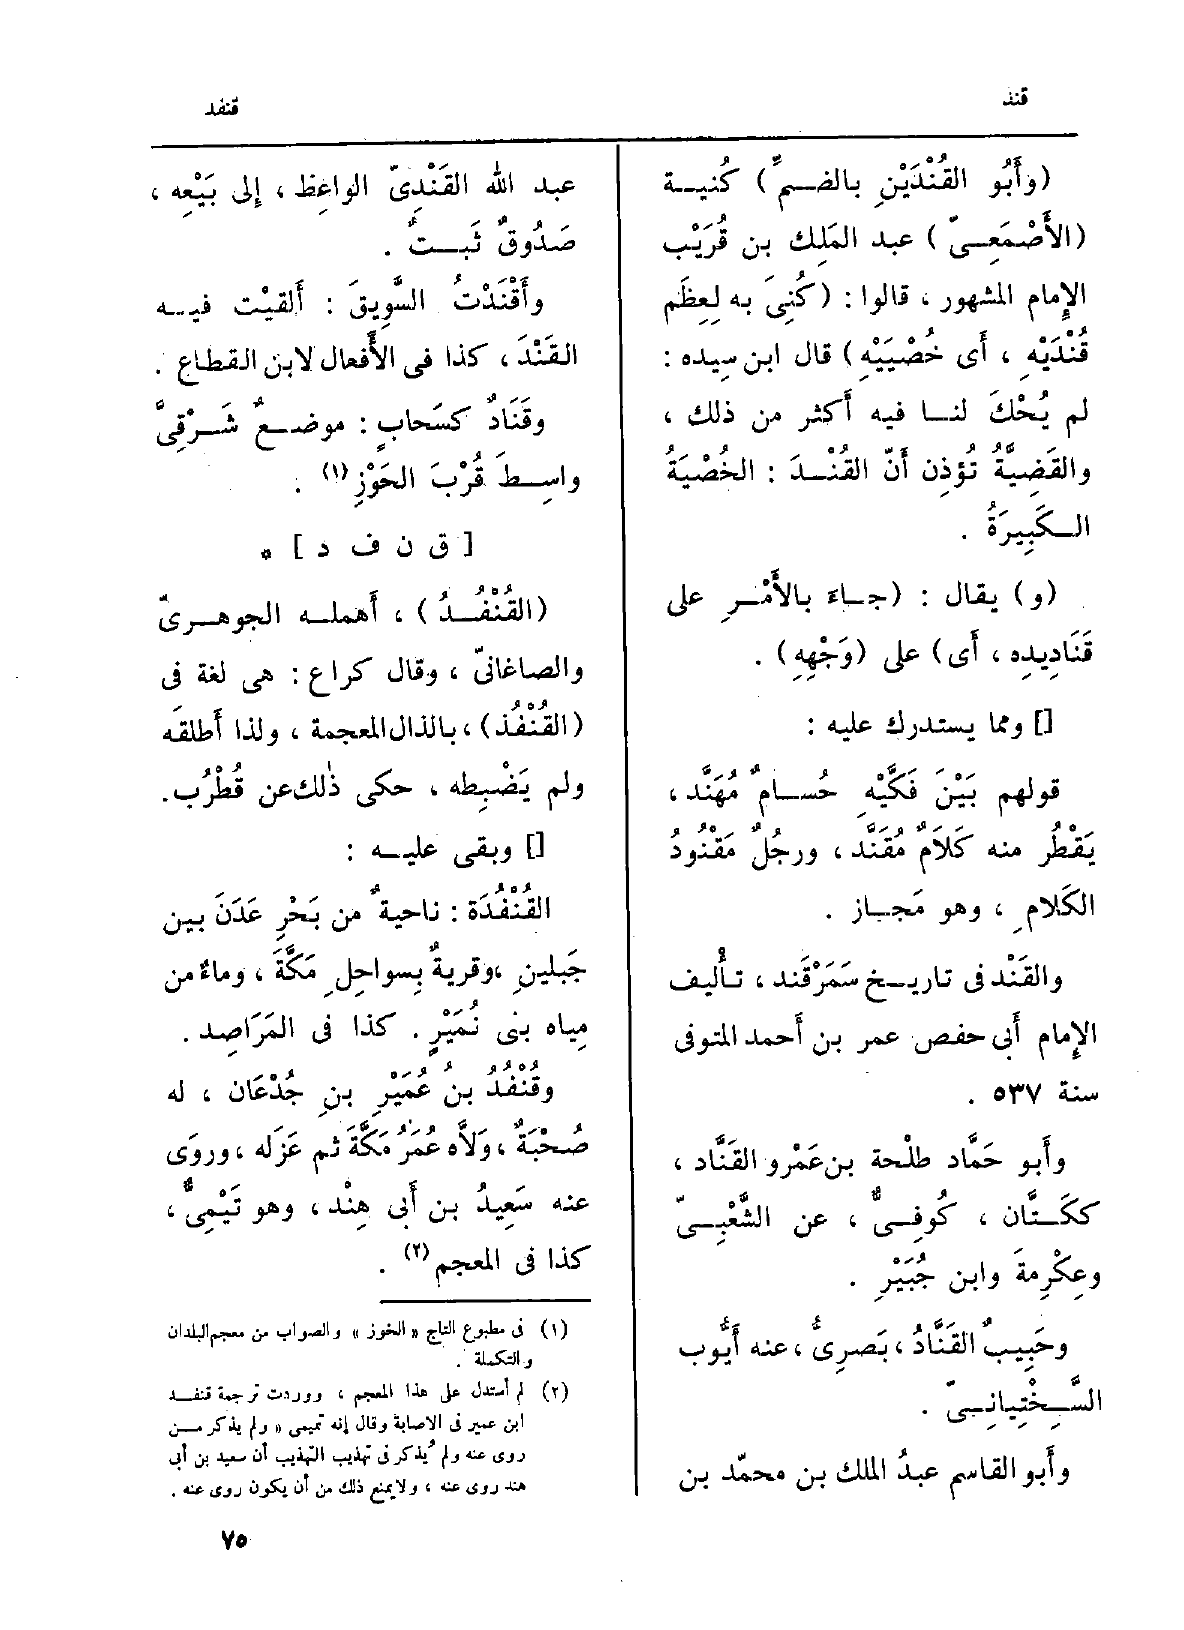 قند
قنفد
(وأَبُو القُنْدَيْنِ بالضمّ) كُنيـة
(الأَصْمَعِىّ) عبد المَلِك بن قُرَيْب
الإِمام المشهور ، قالوا : (كُنِىَ به لِعِظَم
قُنْدَيْهِ ، أَى خُصْيَيْهِ) قال ابن سِيده :
لم يُحْكَ لنـا فيه أَكثر من ذلك ،
والقَضِيَّةُ تُؤذِن أَنّ القُنْـدَ : الخُصْيَةُ
الـكَبِيرَةُ .
(و) يقال : (جـاءَ بالأَمْـرِ على
قَنَادِيدِه ، أَى) على (وَجْهِهِ) .
[] ومما يستدرك عليه :
قولهم بَيْنَ فَكَّيْهِ حُسـامٌ مُهَنَّد ،
يَقْطُر منه كَلَامٌ مُقَنَّد ، ورجُلٌ مَقْنُودُ
الكَلامِ ، وهو مَجـاز .
والقَنْد فى تاريـخ سَمَرْقَند ، تـأْليف
الإِمام أَبى حفص عمر بن أَحمد المتوفى
سنة ٥٣٧ .
وأَبو حَمَّاد طلْحة بن عَمْرو القَنَّاد ،
ككَـتَّان ، كُوفِـىٌّ ، عن الشَّعْبِـىّ
وعِكْرِمةَ وابن جُبَيْرِ .
وحَبِيبٌ القَنَّادُ ، بَصرِىٌّ ، عنه أَيُّوب
السَّـخْتِيانـىّ .
وأَبو القاسم عبدُ الملك بن محمّد بن
عبد الله القَنْدِىّ الواعِظ ، إِلى بَيْعِه ،
صَدُوقٌ ثَبـتٌ .
وأَقْنَدْتُ السَّوِيقَ : أَلقَيْت فيـه
القَنْدَ ، كذا فى الأَفعال لابن القطاع .
وقَنَادٌ كسَحابٍ : موضـعٌ شَـرْقِىَّ
واسِـطَ قُرْبَ الحَوْزِ (١) .
[ ق ن ف د ] *
(القُنْفُـدُ) ، أَهملـه الجوهـرىّ
والصاغانىّ ، وقال كراع : هى لغة فى
(القُنْفُذ) ، بالذال المعجمة ، ولذا أَطلقَه
ولم يَضْبِطه ، حكى ذٰلك عن قُطْرُب .
[] وبقى عليـه :
القُنْفُدَة : ناحيةٌ من بَحْرِ عَدَنَ بين
جَبلينِ ، وقريةٌ بِسواحِلِ مَكَّةَ ، وماءٌ من
مِياه بنى نُمَيْرٍ . كذا فى المَرَاصِد .
وقُنْفُدُ بنُ عُمَيْرِ بنِ جُدْعَان ، له
صُحْبَةٌ ، وَلاَّه عُمَرُ مَكَّةَ ثم عَزَله ، وروَى
عنه سَعِيدُ بن أَبى هِنْد ، وهو تَيْمِىٌّ ،
كذا فى المعجم (٢) .
(١) فى مطبوع التاج « الخوز » والصواب من معجم البلدان
والتكملة .
(٢) لم أستدل على هذا المعجم ، ووردت ترجمة قنفـد
ابن عمير فى الاصابة وقال إنه تميمى « ولم يذكر مـن
روى عنه ولم يُذكر فى تهذيب التهذيب أن سعيد بن أبى
هند روى عنه ، ولا يمنع ذلك من أن يكون روى عنه .
٧٥